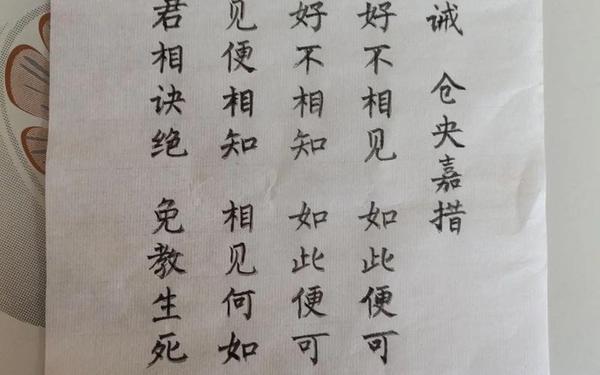 诫 仓央嘉措
好不相见 如此便可
好不相知 如此便可
见便相知 相见何如
君相诀绝 免教生死